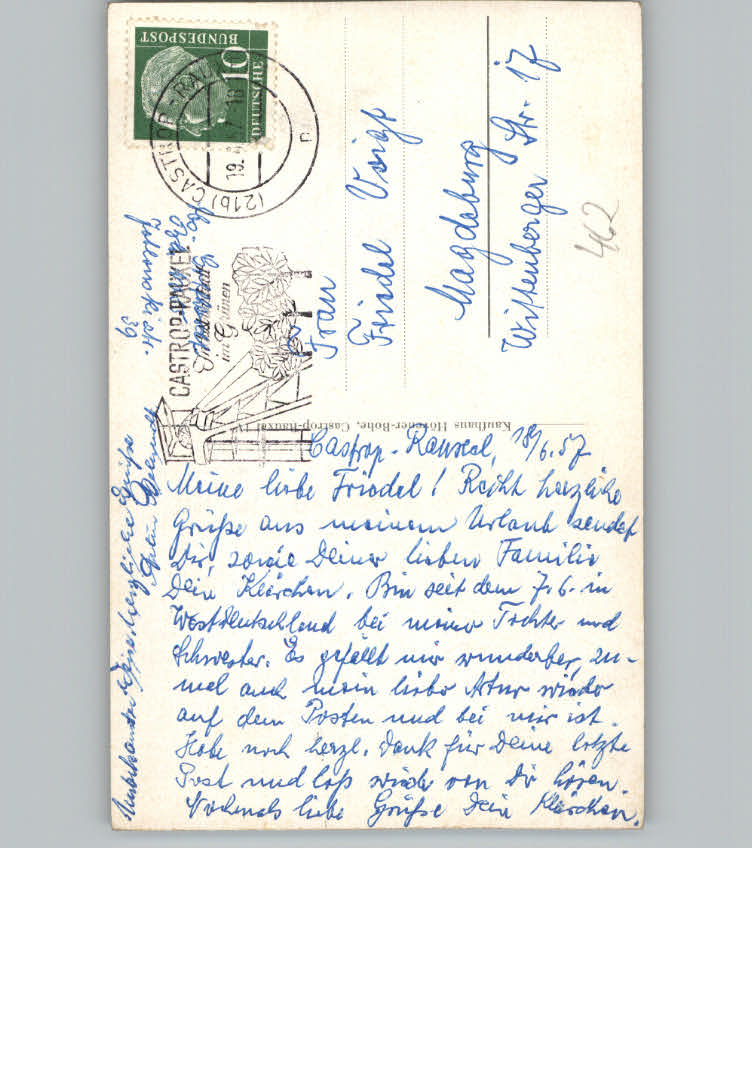 DEUTSCHE
BUNDESPOST
10
(21b) CASTROP-RAUXEL
19.
CASTROP-RAUXEL
im Grünen
Frau
Friedel Voigt
Magdeburg
Wittenberger Str. 17
462
39
Kaufhaus Höxter-Bohe, Castrop-Rauxel
Castrop-Rauxel, 18/6.57
Meine liebe Friedel! Recht herzliche
Grüße aus meinem Urlaub sendet
Dir, sowie Deiner lieben Familie
Dein Klärchen. Bin seit dem 7.6. in
Westdeutschland bei meiner Tochter und
Schwester. Es gefällt mir wunderbar, zu-
mal auch mein lieber Artur wieder
auf dem Posten und bei mir ist.
Habe noch herzl. Dank für Deine letzte
Post und laß wieder von Dir hören.
Nochmals liebe Grüße Dein Klärchen.
Unbekannter Weise herzliche Grüße
Artur